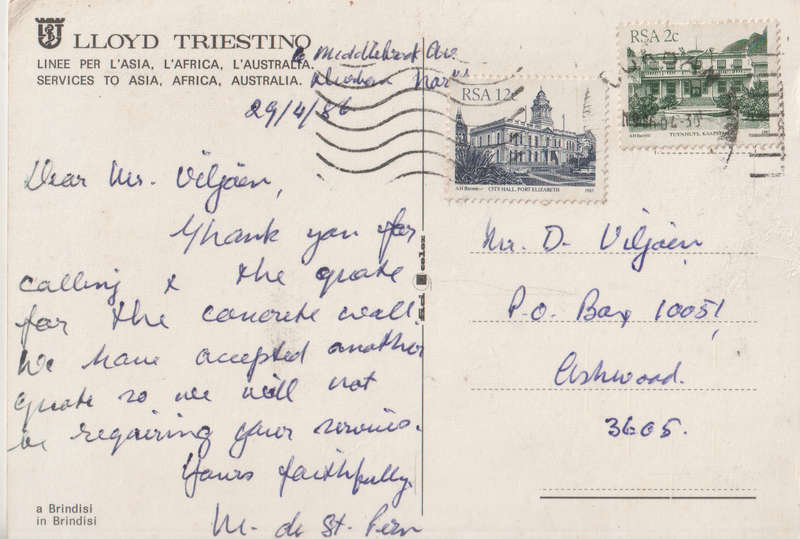 LLOYD TRIESTINO
LINEE PER L'ASIA, L'AFRICA, L'AUSTRALIA.
SERVICES TO ASIA, AFRICA, AUSTRALIA.
Middlebrook Ave.
Durban North
29/4/86
Dear Mr. Viljoen,
Thank you for
calling & the quote
for the concrete wall.
We have accepted another
quote so we will not
be requiring your services.
Yours faithfully,
M. de St. Pern
a Brindisi
in Brindisi
color
RSA 12c
AH Barrett
CITY HALL, PORT ELIZABETH
RSA 2c
AH Barrett
TUYNHUYS, KAAPSTAD
Mr. D. Viljoen
P.O. Box 10051,
Ashwood.
3605.